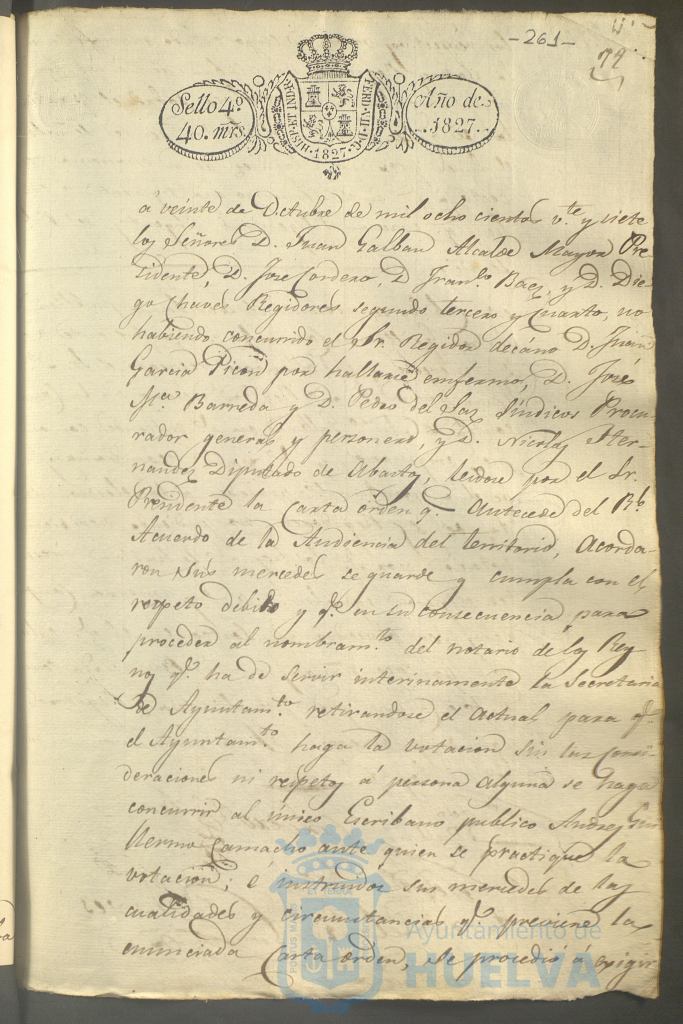 -261-
79
Sello 4º
40. mrs.
HISP. ET IND. R. 1827.
FERD. VII. D. G.
Año de
1827.
á veinte de Octubre de mil ocho cientos v.te y siete
los Señores D. Juan Galban Alcalde Mayor Pre-
sidente, D. Jose Cordero, D. Fran.co Baez, y D. Die-
go Chaves Regidores segundo tercero y Cuarto, no
habiendo concurrido el Sr. Regidor decáno D. Juan
Garcia Picon por hallarse emfermo, D. José
M.a Barreda y D. Pedro del Saz Síndicos Procu-
rador general y personero, y D. Nicolas Her-
nandez Diputado de Abastos, leidose por el Sr.
Presidente la Carta órden q.e Antecede del R.l
Acuerdo de la Audiencia del territorio, Acorda-
ron sus mercedes se guarde y cumpla con el
respeto débido y q.e en su consecuencia para
proceder al nombram.to del notario de los Rey-
nos q.e ha de Servir interinamente la Secretaria
de Ayuntam.to retirandose el Actual para q.e
el Ayuntam.to haga la votacion sin las Consi-
deraciones ni respetos á persona alguna se haga
concurrir al único Escribano publico Andres Gui
llermo Camacho ante quien se practique la
votacion; é instruidos sus mercedes de las
cualidades y circunstancias q.e previene la
enunciada Carta órden, se procedió á exigir
Ayuntamiento de
HUELVA